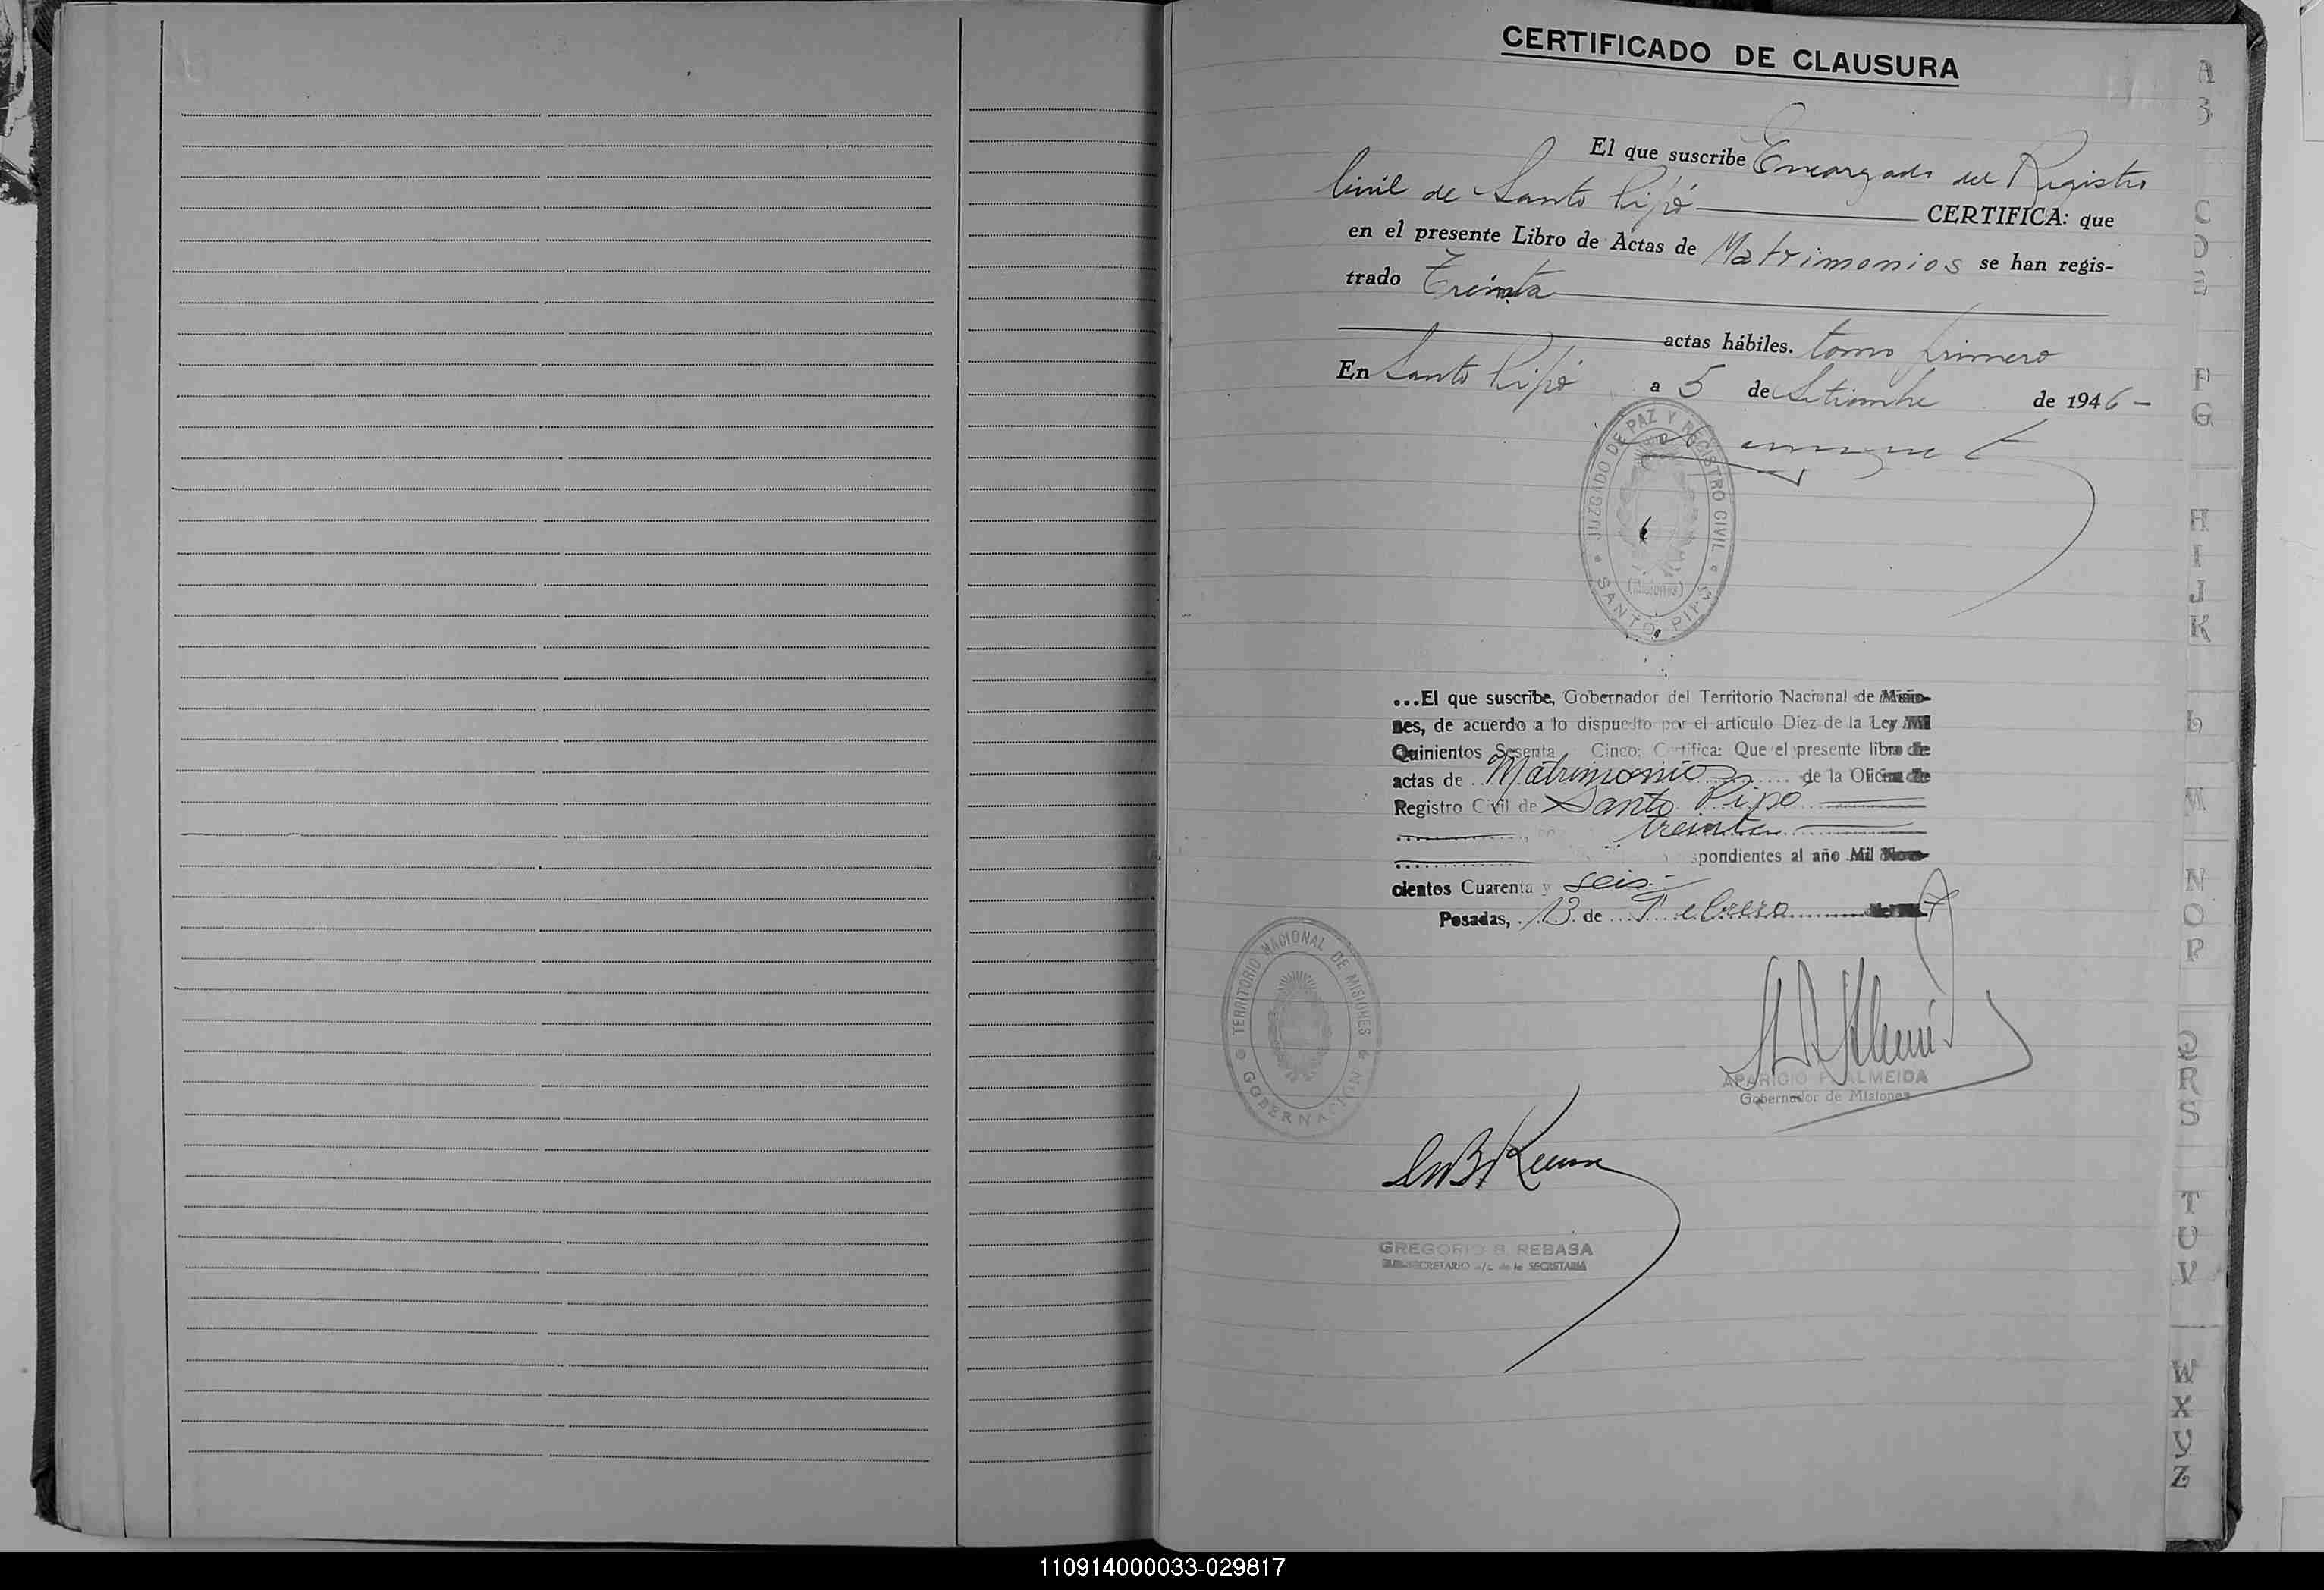 CERTIFICADO DE CLAUSURA
El que suscribe Encargado del Registro
Civil de Santo Pipó CERTIFICA: que
en el presente Libro de Actas de Matrimonios se han regis-
trado Treinta
actas hábiles. tomo primero
En Santo Pipó a 5 de Setiembre de 1946 -
JUZGADO DE PAZ Y REGISTRO CIVIL
(Misiones)
SANTO PIPÓ
...El que suscribe, Gobernador del Territorio Nacional de Misio-
nes, de acuerdo a lo dispuesto por el artículo Diez de la Ley Mil
Quinientos Sesenta Cinco; Certifica: Que el presente libro de
actas de Matrimonios de la Oficina de
Registro Civil de Santo Pipó
treinta
pondientes al año Mil Nove-
cientos Cuarenta y seis.-
Posadas, 13 de Febrero de 7
TERRITORIO NACIONAL DE MISIONES
GOBERNACION
APARICIO ALMEIDA
Gobernador de Misiones
GREGORIO B. REBASA
SUB-SECRETARIO a/c de la SECRETARIA
A
B
C
D
E
F
G
H
I
J
K
L
M
N
O
P
Q
R
S
T
U
V
W
X
Y
Z
110914000033-029817